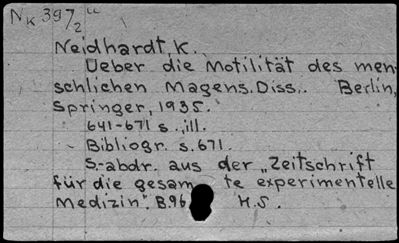 NK 397/2 u
Neidhardt, K.
Ueber die Motilität des men-
schlichen Magens. Diss.. Berlin,
Springer, 1935.
641-671 s., ill.
Bibliogr. s. 671.
S.-abdr. aus der „Zeitschrift
für die gesam te experimentelle
Medizin". B.96 H.5.